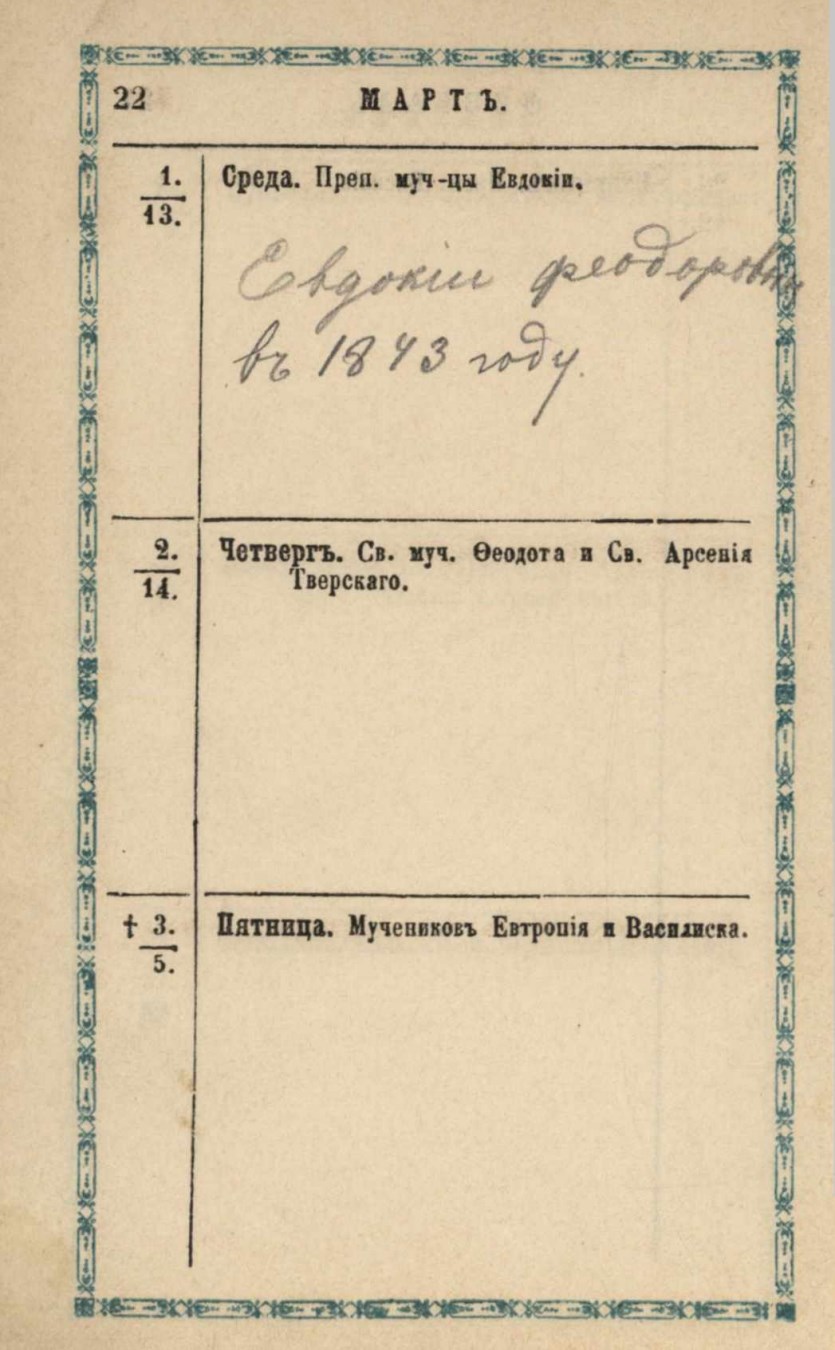 22 МАРТЪ.
1.
13.
Среда. Преп. муч-цы Евдокіи.
Евдокіи феодоровны
въ 1843 году.
2.
14.
Четвергъ. Св. муч. Ѳеодота и Св. Арсенія
Тверскаго.
† 3.
5.
Пятница. Мучениковъ Евтропія и Василиска.